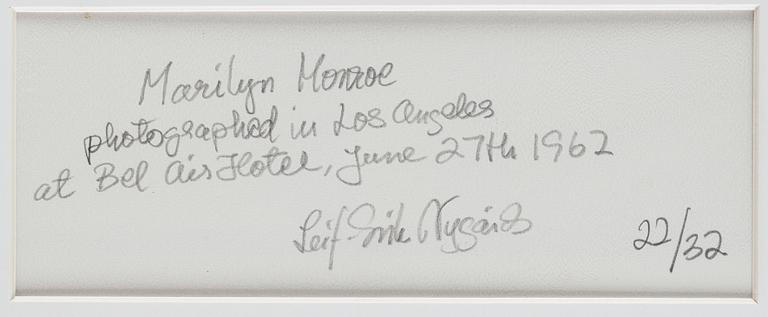 Marilyn Monroe
photographed in Los Angeles
at Bel Air Hotel, June 27th 1962
Leif-Erik Nygårds
22/32